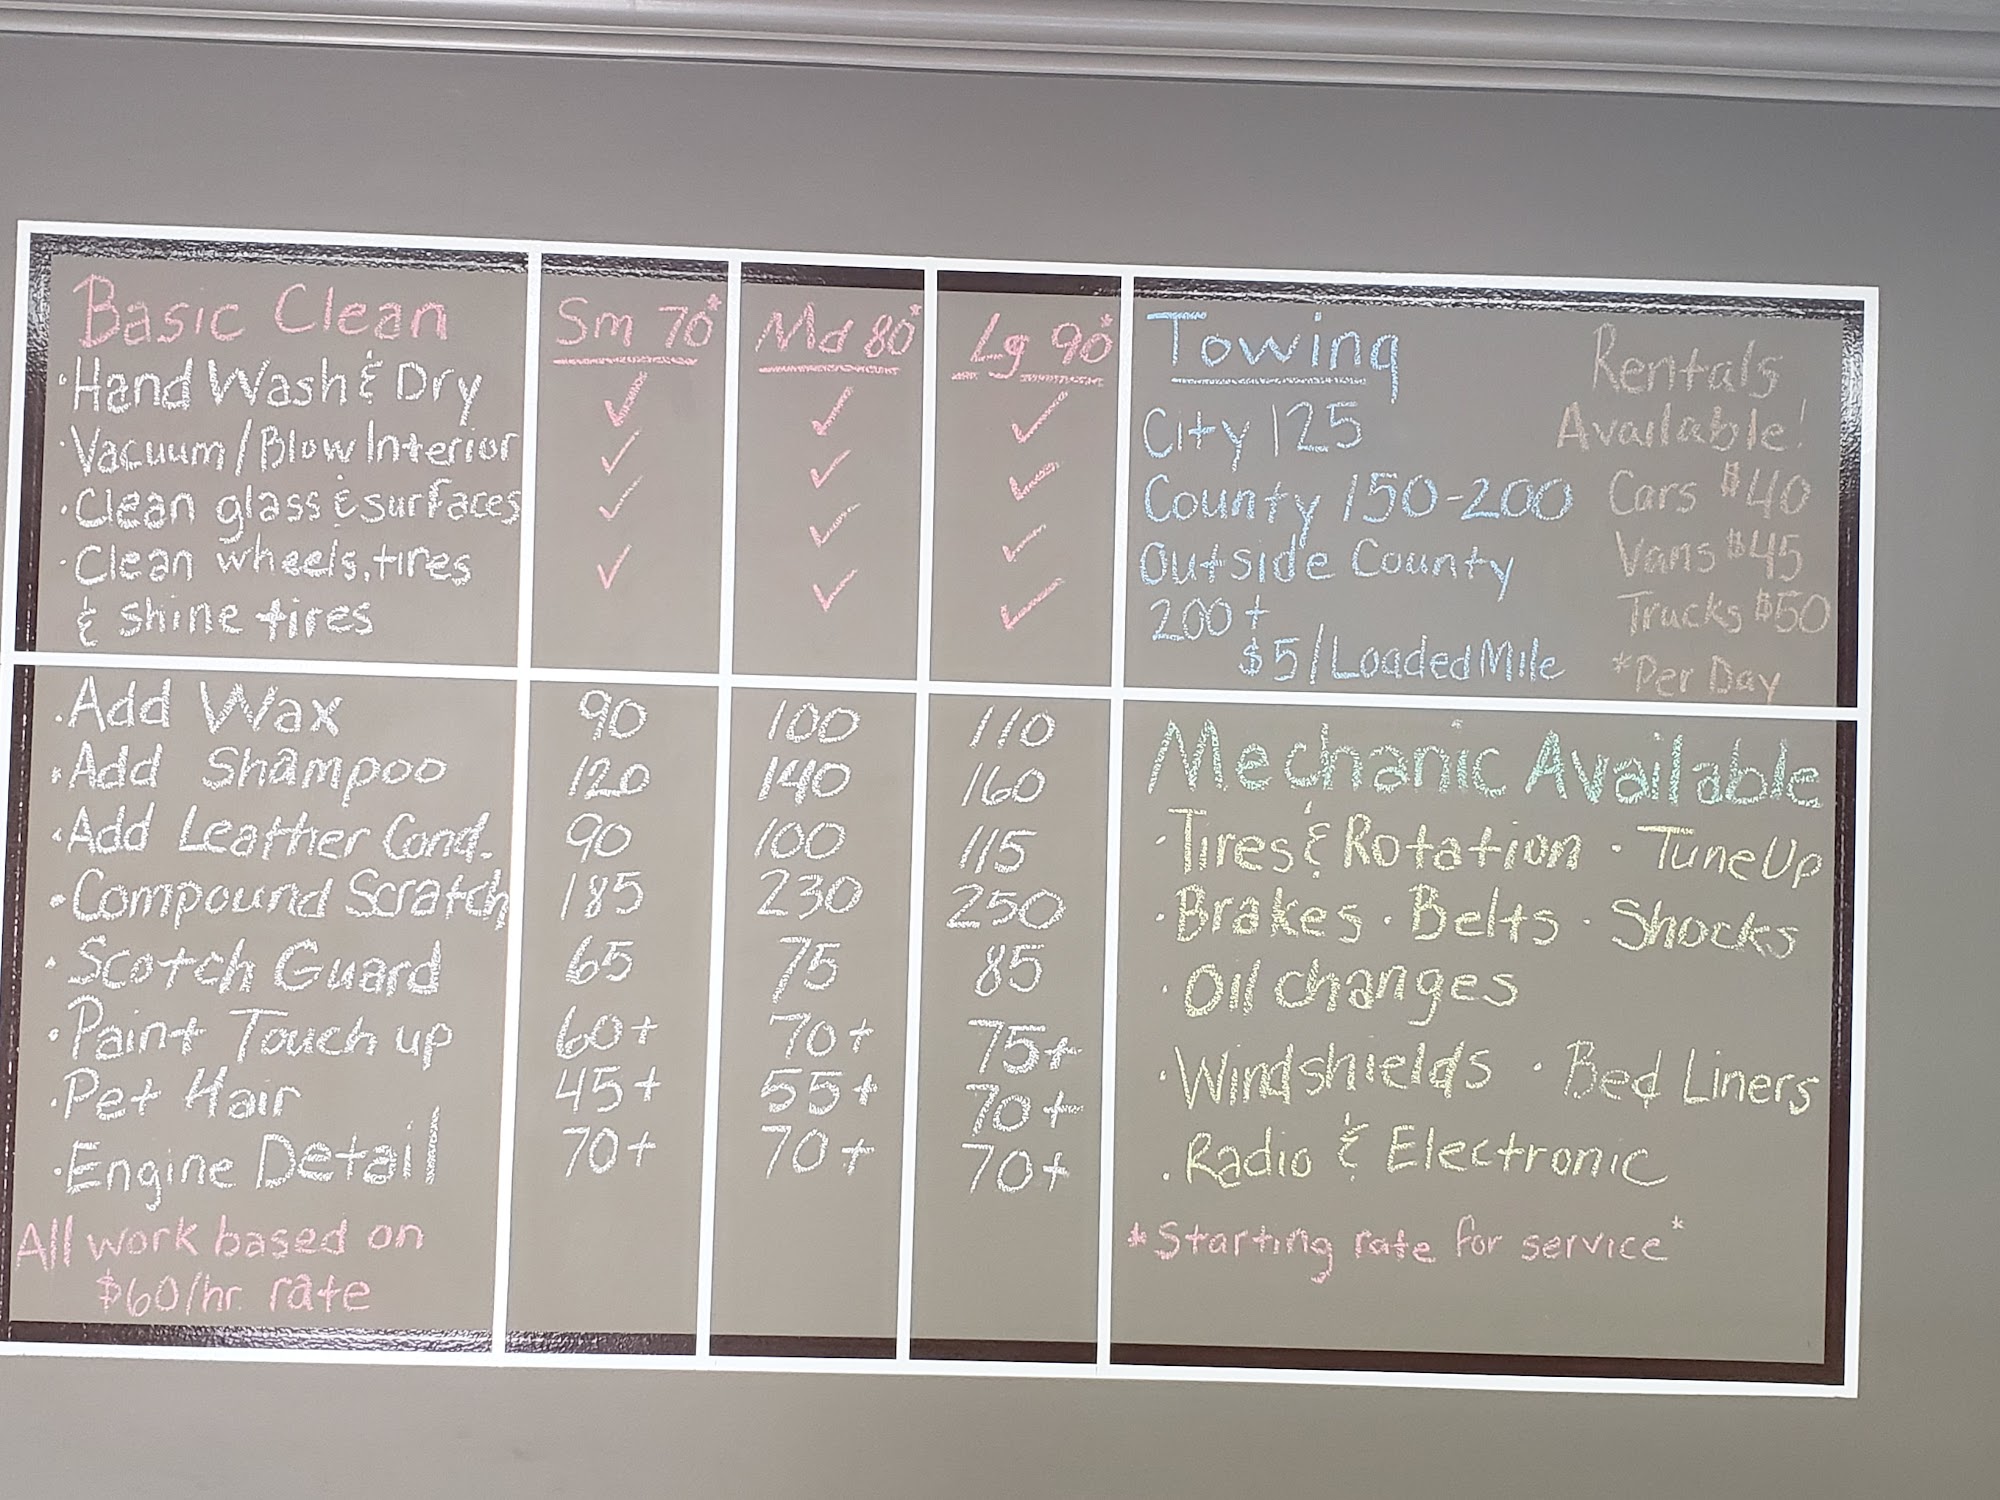 Basic Clean Sm 70* Md 80* Lg 90*
· Hand Wash & Dry ✓ ✓ ✓
· Vacuum/Blow Interior ✓ ✓ ✓
· Clean glass & surfaces ✓ ✓ ✓
· Clean wheels, tires ✓ ✓ ✓
& shine tires
Towing
City 125
County 150-200
Outside County
200+
$5/Loaded Mile
Rentals
Available!
Cars $40
Vans $45
Trucks $50
*Per Day
· Add Wax 90 100 110
· Add Shampoo 120 140 160
· Add Leather Cond. 90 100 115
· Compound Scratch 185 230 250
· Scotch Guard 65 75 85
· Paint Touch up 60+ 70+ 75+
· Pet Hair 45+ 55+ 70+
· Engine Detail 70+ 70+ 70+
All work based on
$60/hr. rate
Mechanic Available
· Tires & Rotation · Tune Up
· Brakes · Belts · Shocks
· Oil changes
· Windshields · Bed Liners
· Radio & Electronic
*Starting rate for service*